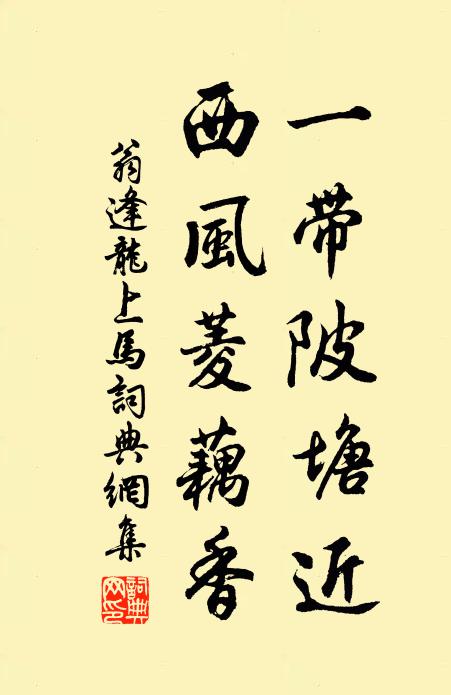 一帶陂塘近
西風菱藕香
翁逢龍上馬詞典網集
詞典網印